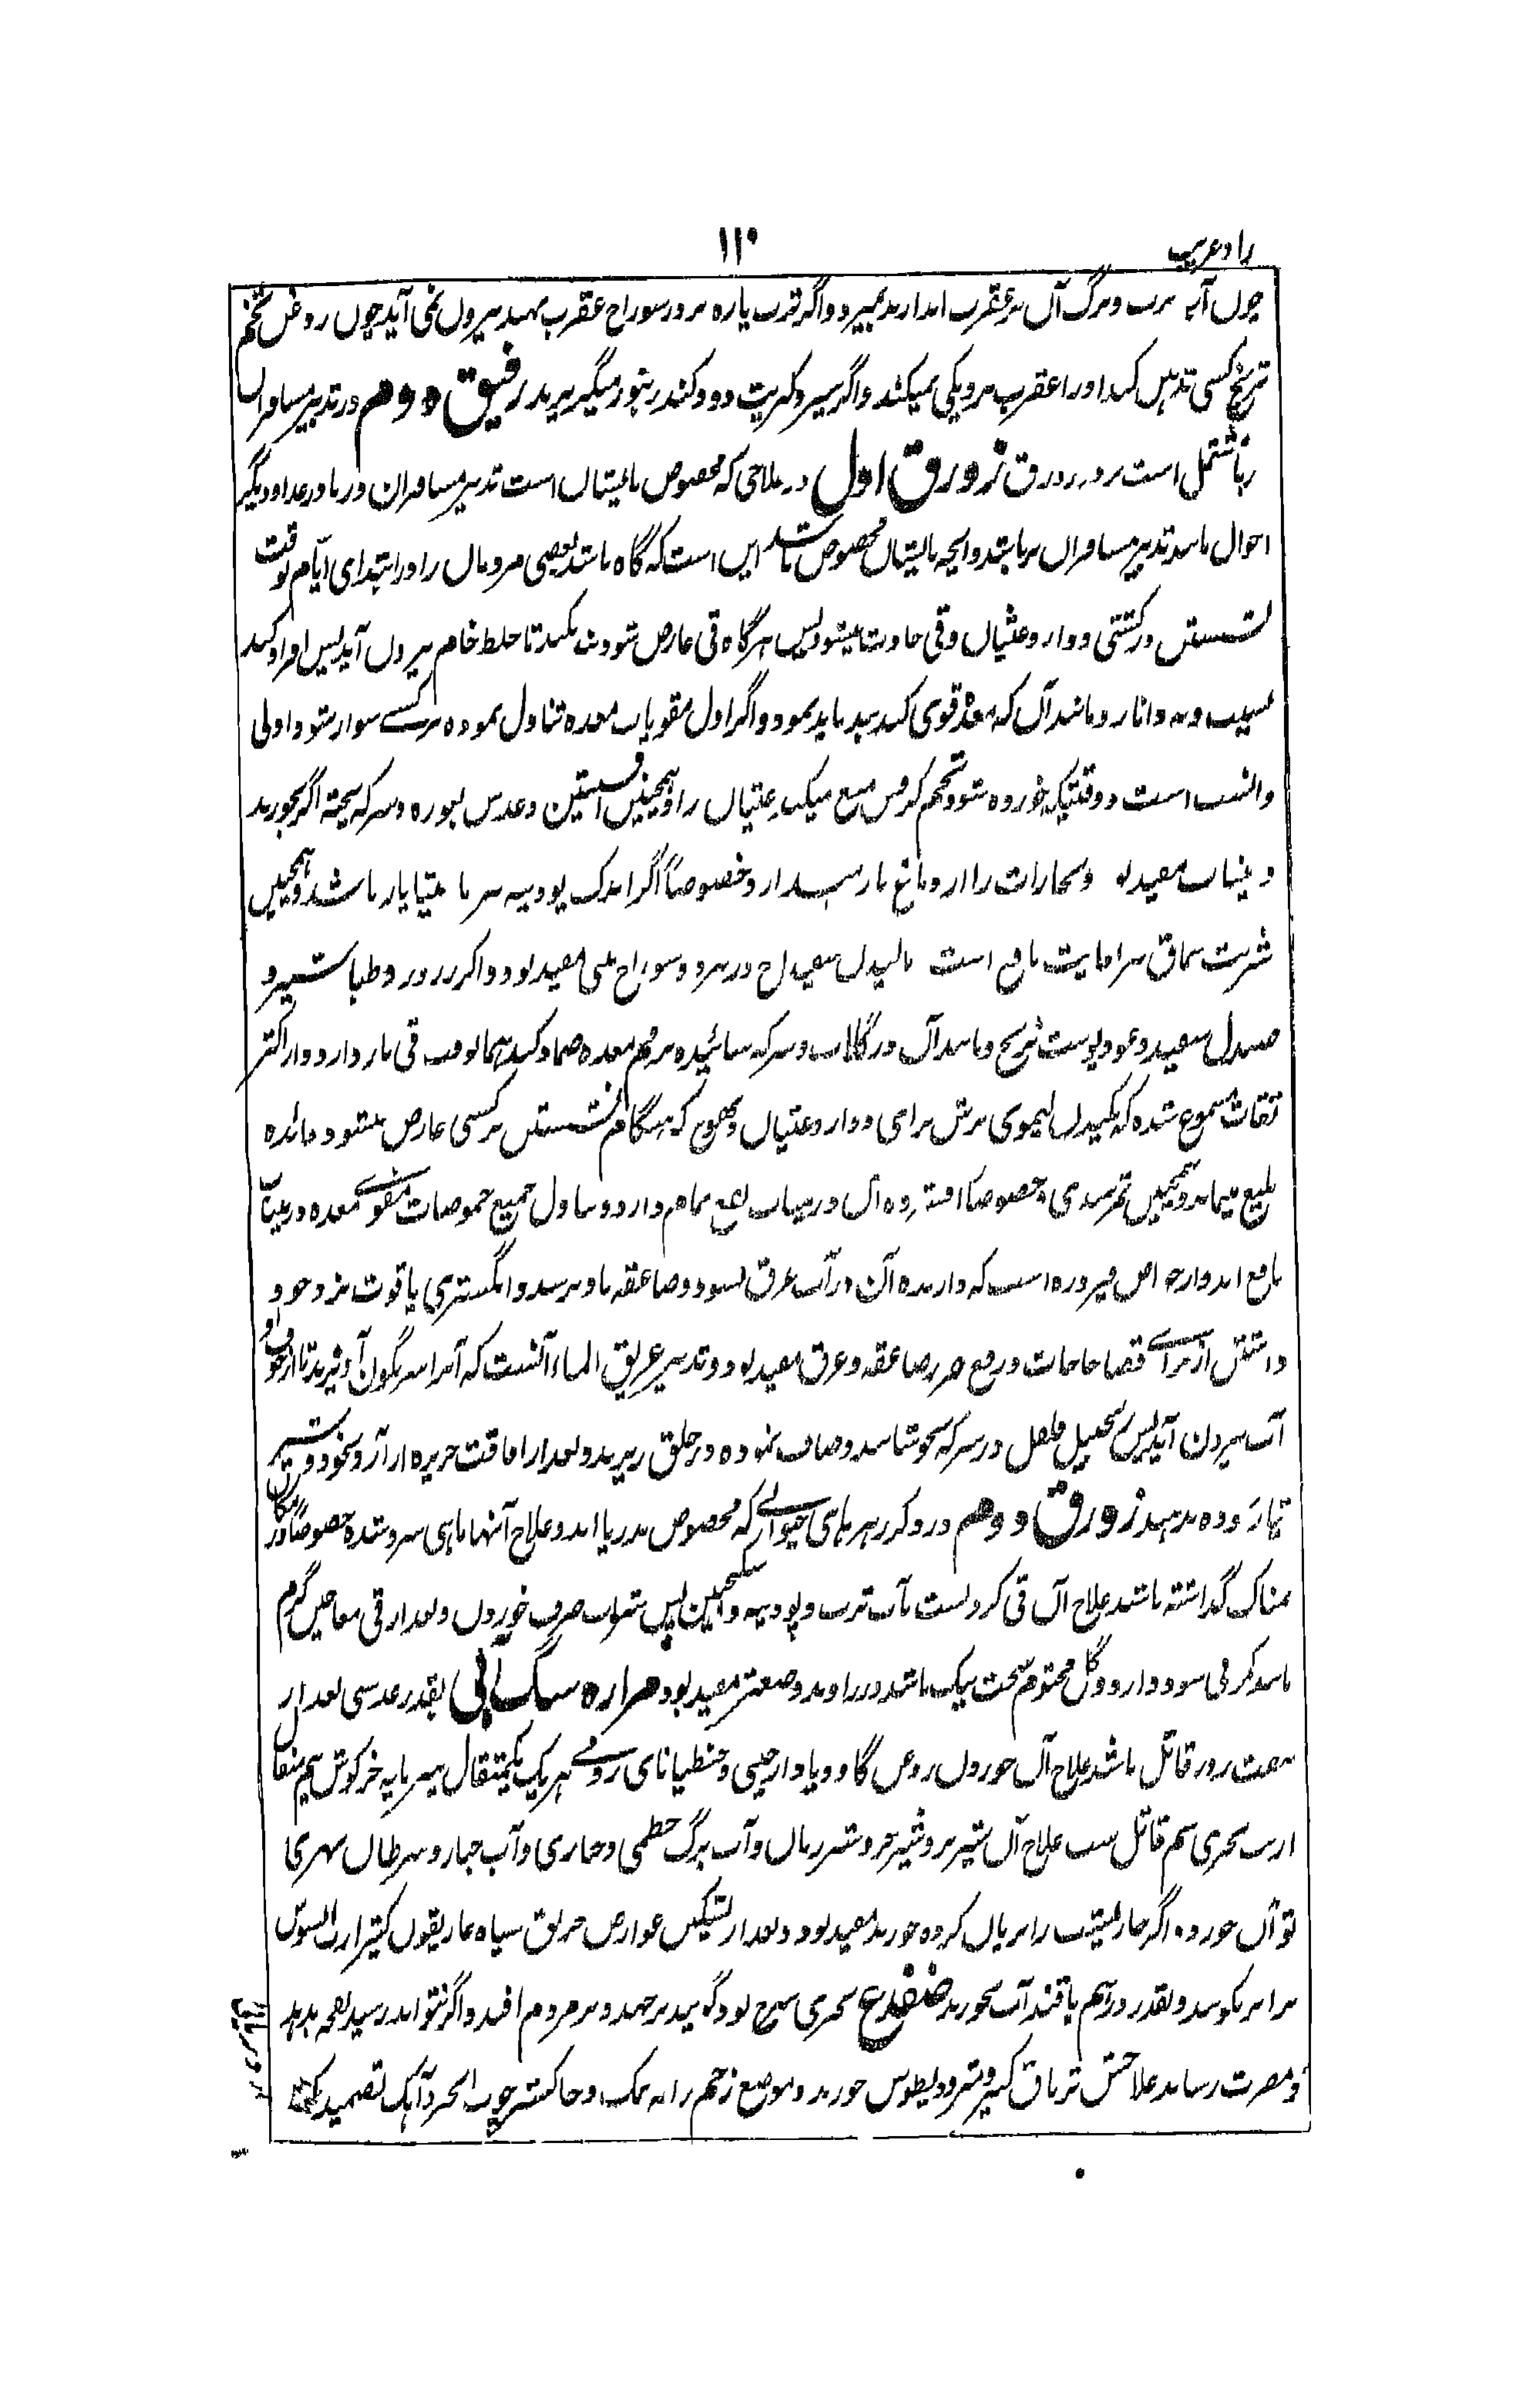 زاد غریب
۱۱۰
چون آب ترب و برگ آن بر عقرب اندازند بمیرد و اگر ترب پاره بر در سوراخ عقرب نهند بیرون نمی آید چون روغن تخم
ترنج کسی تدہین کند او را عقرب و یکی نمیکشد و اگر سیر و کبریت دود کنند زنبور میگریزند رفیق دوم در تدبیر مسافران
دریا مشتمل است بر دو زورق زورق اول در علاجی که مخصوص بایشان است تدبیر مسافران دریا در غذا و دیگر
احوال مانند تدبیر مسافران بر باشد و انچه بایشان مخصوص باشد این است که گاه باشد بعضی مردمان را در ابتدای ایام وقت
نشستن در کشتی دوار و غثیان و قی حادث میشود پس هرگاه قی عارض شود منع نکنند تا خلط خام بیرون آید پس افراط کند
سیب و به و انار و مانند آن که معده قوی کند باید نمود و اگر اول مقویات معده تناول نموده بر کشتی سوار شود اولی
و انسب است و وقتیکه خورده شود تخم کرفس منع میکند غثیان را و همچنین افسنتین و عدس بغوره و سرکه پخته اگر بخورند
در غثیان مفید بود و بخارات را از دماغ باز میدارد خصوصاً اگر اندک پودینه با باشد و همچنین
شربت سماق نافع است مالیدن سفیداج در سوراخ بینی مفید بود و اگر زرورد و طباشیر و
صندل سفید و عود و پوست ترنج و مانند آن در گلاب و سرکه سائیده بر فم معده ضماد کنند همانوقت قی باز دارد و از اکثر
ثقات مسموع شده که مکیدن لیموی ترش برای دوار و غثیان و تهوع که هنگام نشستن کشتی عارض میشود فائده
بلیغ مینماید و همچنین تمرهندی خصوصا آن در نفع تمام دارد و تناول جمیع حموضات مقوی معده درینباب
نافع اند و از خواص فیروزه است که دارنده آن در آب غرق نشود و صاعقه باو نرسد و انگشتری یاقوت نزد خود
داشتن از برای قضا حاجات و دفع ضرر صاعقه و غرق مفید بود و تدبیر غریق الماء آنست که آنرا سرنگون آویزند تا از جوف او
آب بیرون آید پس زنجبیل فلفل در سرکه بجوشانند و صاف نموده در حلق ریزند و بعد از افاقت حریره از آرد نخود و شیر
بدهند زورق دوم در ذکر زهرهای حیوانی که مخصوص بدریا اند و علاج آنها ماهی سرد شده خصوصاً که در مکان
نمناک گذاشته باشند علاج آن قی کردنست بآب ترب و پودینه و سکنجبین پس شراب صرف خوردن و بعد از قی معاجین گرم
سود دارد و گل مختوم سخت نیک باشد و زراوند و صعتر مفید بود مراره سگ آبی بقدر عدسی بعد از
هفت روز قاتل باشد علاج آن خوردن روغن گاو و یا دارچینی و جنطیانای رومی هر یک یکمثقال پنیرمایه خرگوش نیم مثقال
ارنب بحری سم قاتل است علاج آن شیر بز و شیر خر و شیر زنان و آب برگ خطمی و خبازی و آب جبار و سرطان نهری
تو آن خورد اگر خارپشت را بریان کرده خورند مفید بود و بعد از تسکین عوارض خربق سیاه غاریقون کتیرا رب السوس
برابر بکوبند و بقدر درهم باقند آب بخورند ضفدع بحری سرخ بود گویند برجهد و بر مردم افتد و اگر نتواند رسید نفخه بدمد
و مضرت رساند علاجش تریاق کبیر و مثرودیطوس خورند و موضع زخم را به نمک و خاکستر چوب انجیر و آهک تضمید کنند